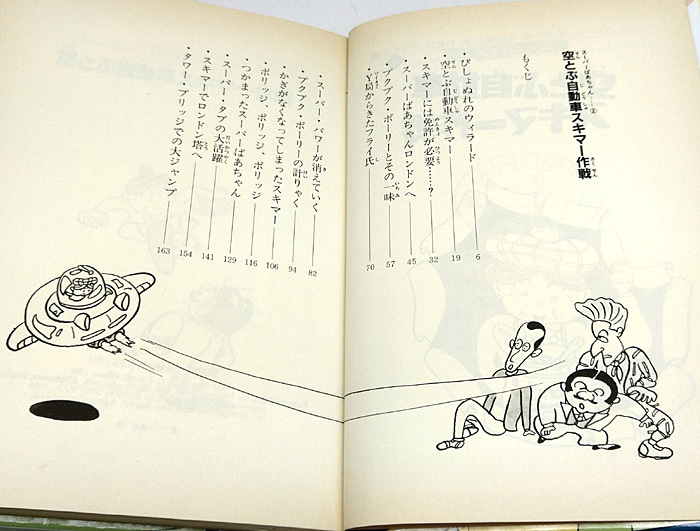 スーパーばあちゃん……②
空とぶ自動車スキマー作戦
もくじ
・びしょぬれのウィラード 6
・空とぶ自動車スキマー 19
・スキマーには免許が必要……? 32
・スーパーばあちゃんロンドンへ 45
・ブクブク・ポーリーとその一味 57
・Y局からきたフライ氏 70
・スーパー・パワーが消えていく 82
・ブクブク・ポーリーの計りゃく 94
・かぎがなくなってしまったスキマー 106
・ポリッジ、ポリッジ、ポリッジ 116
・つかまったスーパーばあちゃん 129
・スーパー・タブの大活躍 141
・スキマーでロンドン塔へ 154
・タワー・ブリッジでの大ジャンプ 163